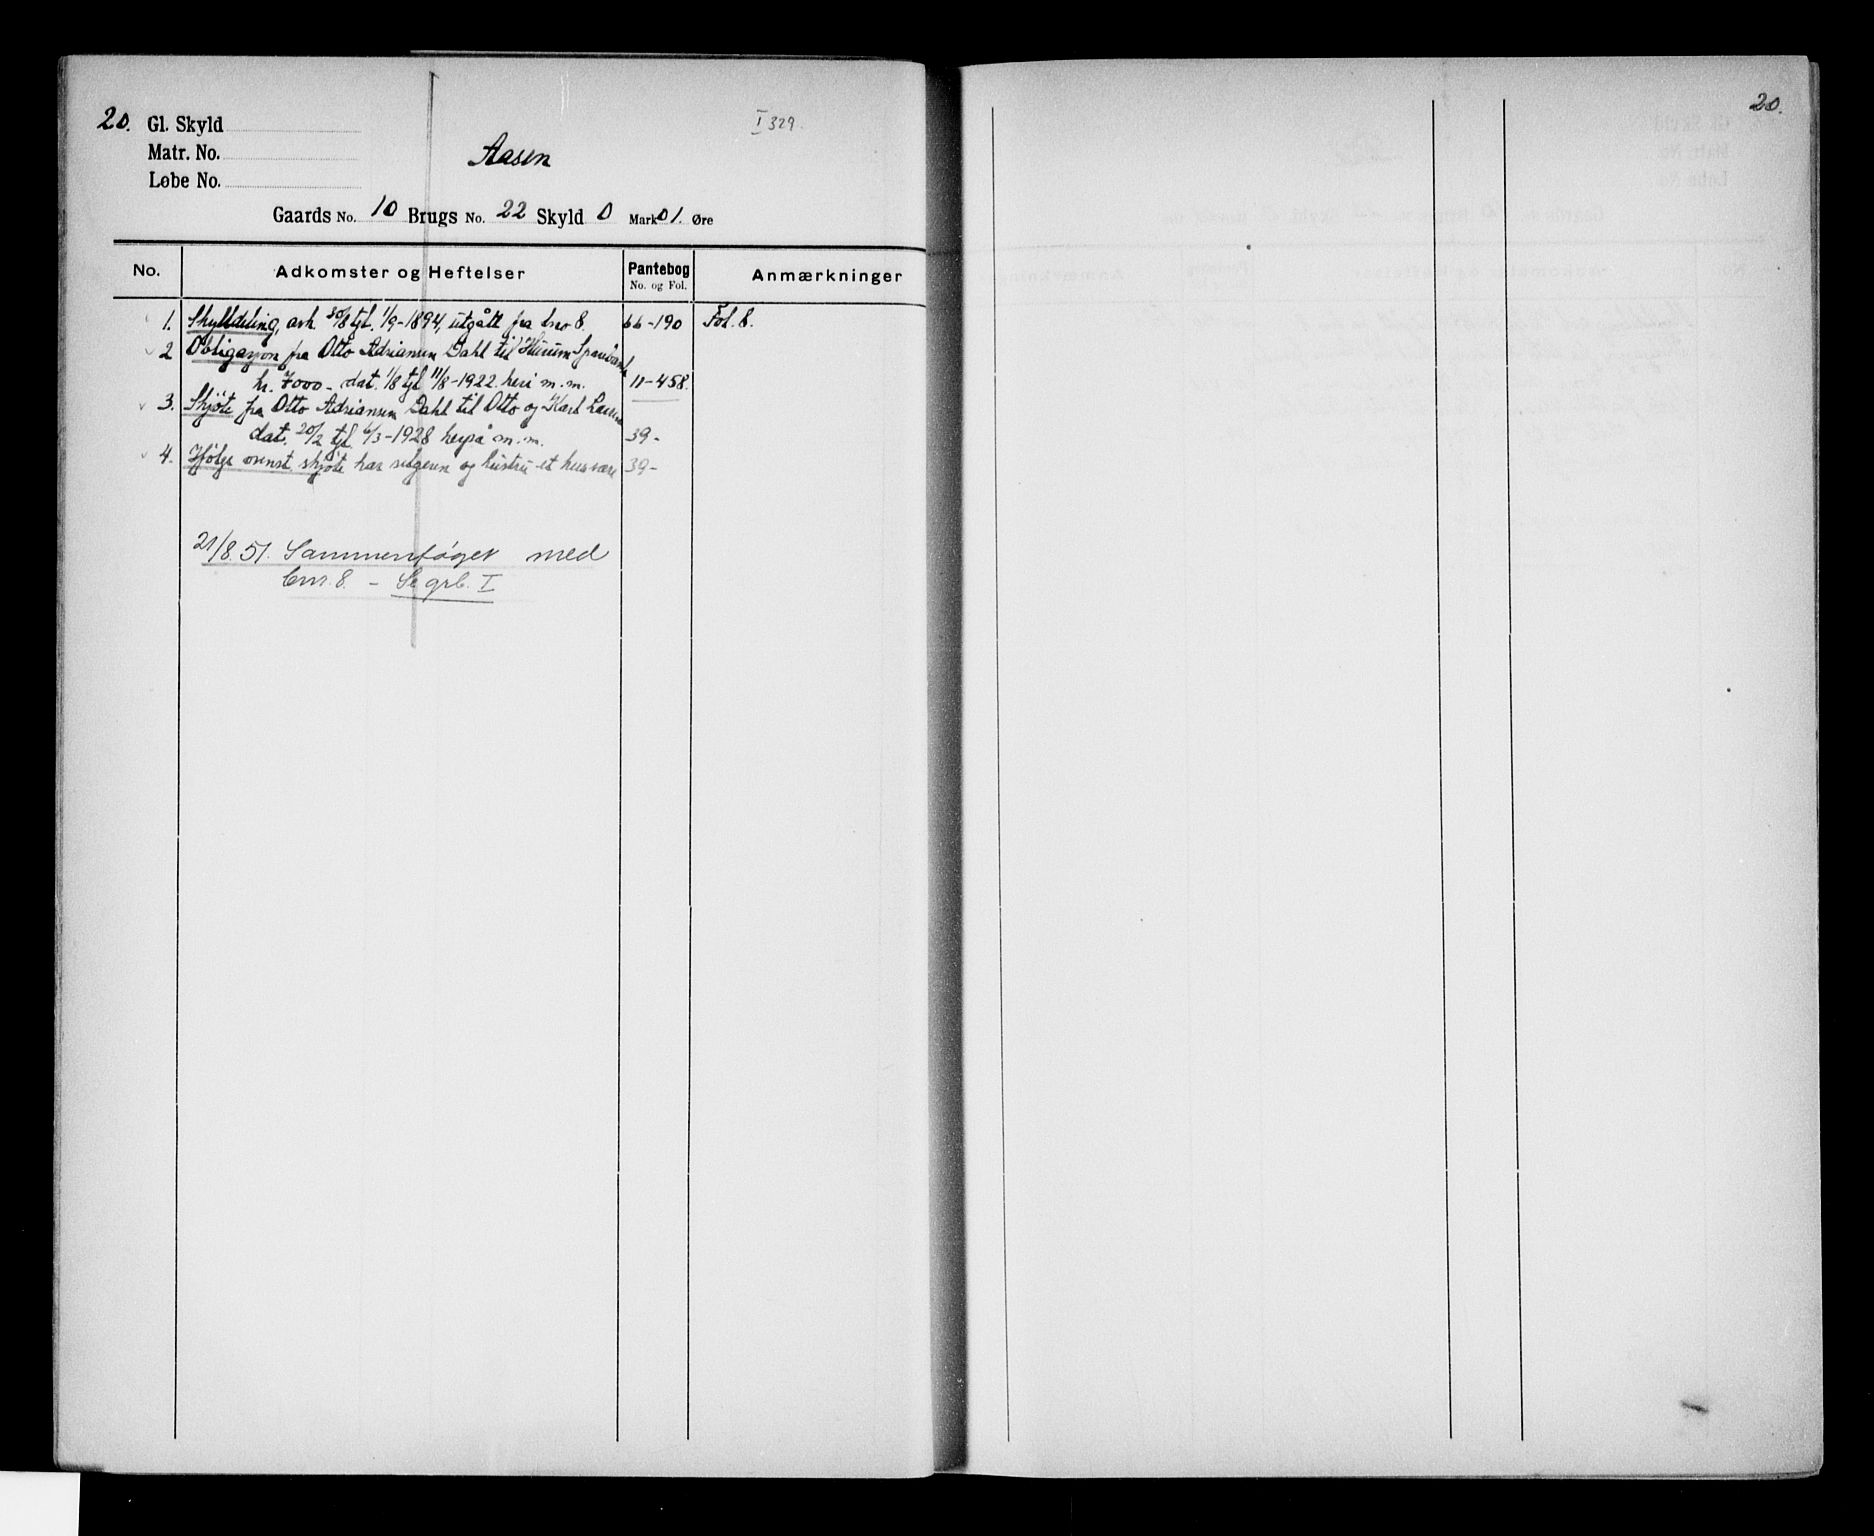 20. Gl. Skyld
I 329.
Matr. No.
Aasen
Løbe No.
Gaards No. 10 Brugs No. 22 Skyld 0 Mark 01. Øre
No. Adkomster og Heftelser Pantebog No. og Fol. Anmærkninger
1. Skylddeling, avh. 30/8 tgl. 1/9-1894, utgått fra bno 8. 66-190 Fol. 8.
2 Obligasjon fra Otto Adriansen Dahl til Hurum Sparebank
kr. 7000 - dat. 1/8 tgl 11/8-1922. heri m.m. 11-458.
3. Skjøte fra Otto Adriansen Dahl til Otto og Karl Larsen
dat. 20/2 tgl. 6/3-1928 herpå m.m. 39-
4. Ifølge ovenst. skjøte har selgeren og hustru et husvære 39-
21/8.51. Sammenføyet med
bnr. 8. - Se grb. I
20.